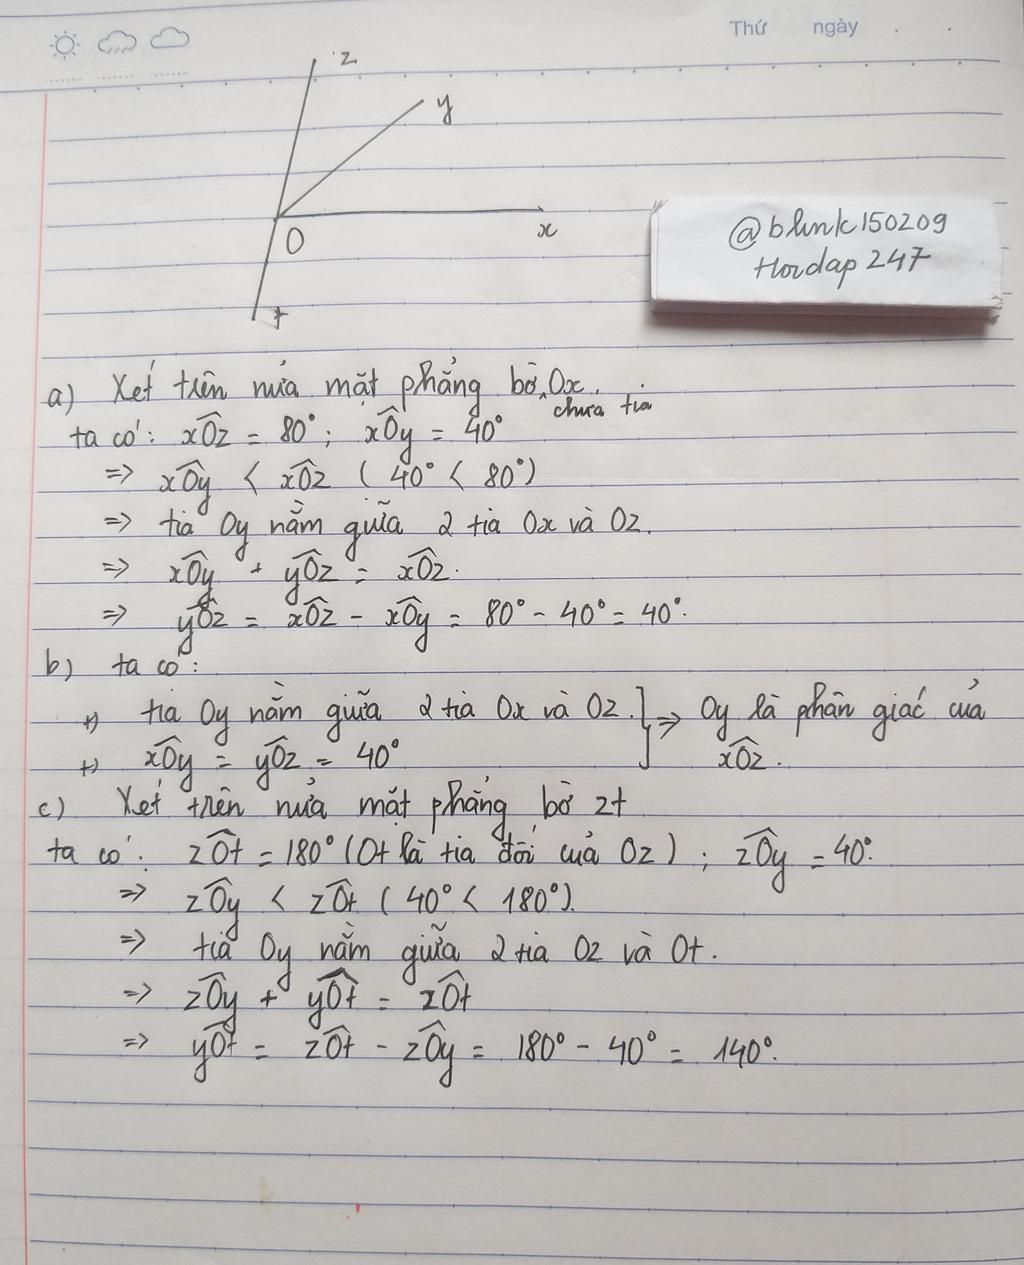 Thứ ngày
z
y
O
x
t
@blink150209
Hoidap 247
a) Xét trên nửa mặt phẳng bờ chứa tia Ox.
ta có: xÔz = 80°; xÔy = 40°
=> xÔy < xÔz ( 40° < 80°)
=> tia Oy nằm giữa 2 tia Ox và Oz.
=> xÔy + yÔz = xÔz.
=> yÔz = xÔz - xÔy = 80° - 40° = 40°.
b) ta có:
+) tia Oy nằm giữa 2 tia Ox và Oz. } => Oy là phân giác của
+) xÔy = yÔz = 40° xÔz.
c) Xét trên nửa mặt phẳng bờ zt
ta có: zÔt = 180° (Ot là tia đối của Oz) ; zÔy = 40°.
=> zÔy < zÔt ( 40° < 180°).
=> tia Oy nằm giữa 2 tia Oz và Ot.
=> zÔy + yÔt = zÔt
=> yÔt = zÔt - zÔy = 180° - 40° = 140°.